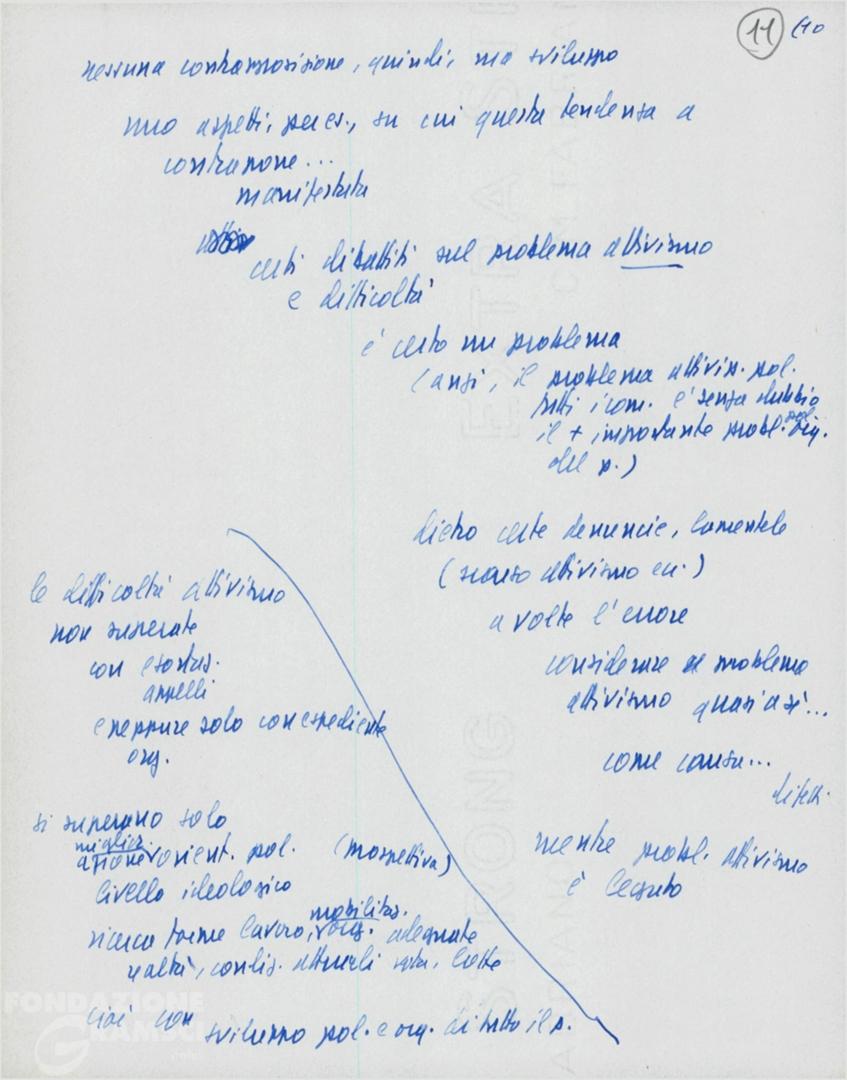 11 (10
nessuna contrapposizione, quindi, ma sviluppo
uno aspetti, per es., su cui questa tendenza a
contrappone...
manifestata
certi dibattiti sul problema attivismo
e difficoltà
è certo un problema
(anzi, il problema attivis. pol.
tutti i com. è senza dubbio
il + importante probl. pol. org.
del p.)
dietro certe denuncie, lamentele
(scarso attivismo ecc.)
a volte l'errore
considerare problema
attivismo quasi a sé...
come causa...
difett.
mentre probl. attivismo
è legato
le difficoltà attivismo
non superate
con esortaz.
appelli
e neppure solo con espediente
org.
si superano solo
miglior
orient. pol. (prospettiva)
livello ideologico
ricerca forme lavoro, mobilitaz. org. adeguate
realtà, condiz. attuali lotte
cioè con sviluppo pol. e org. di tutto il p.
FONDAZIONE
GRAMSCI
STRONG